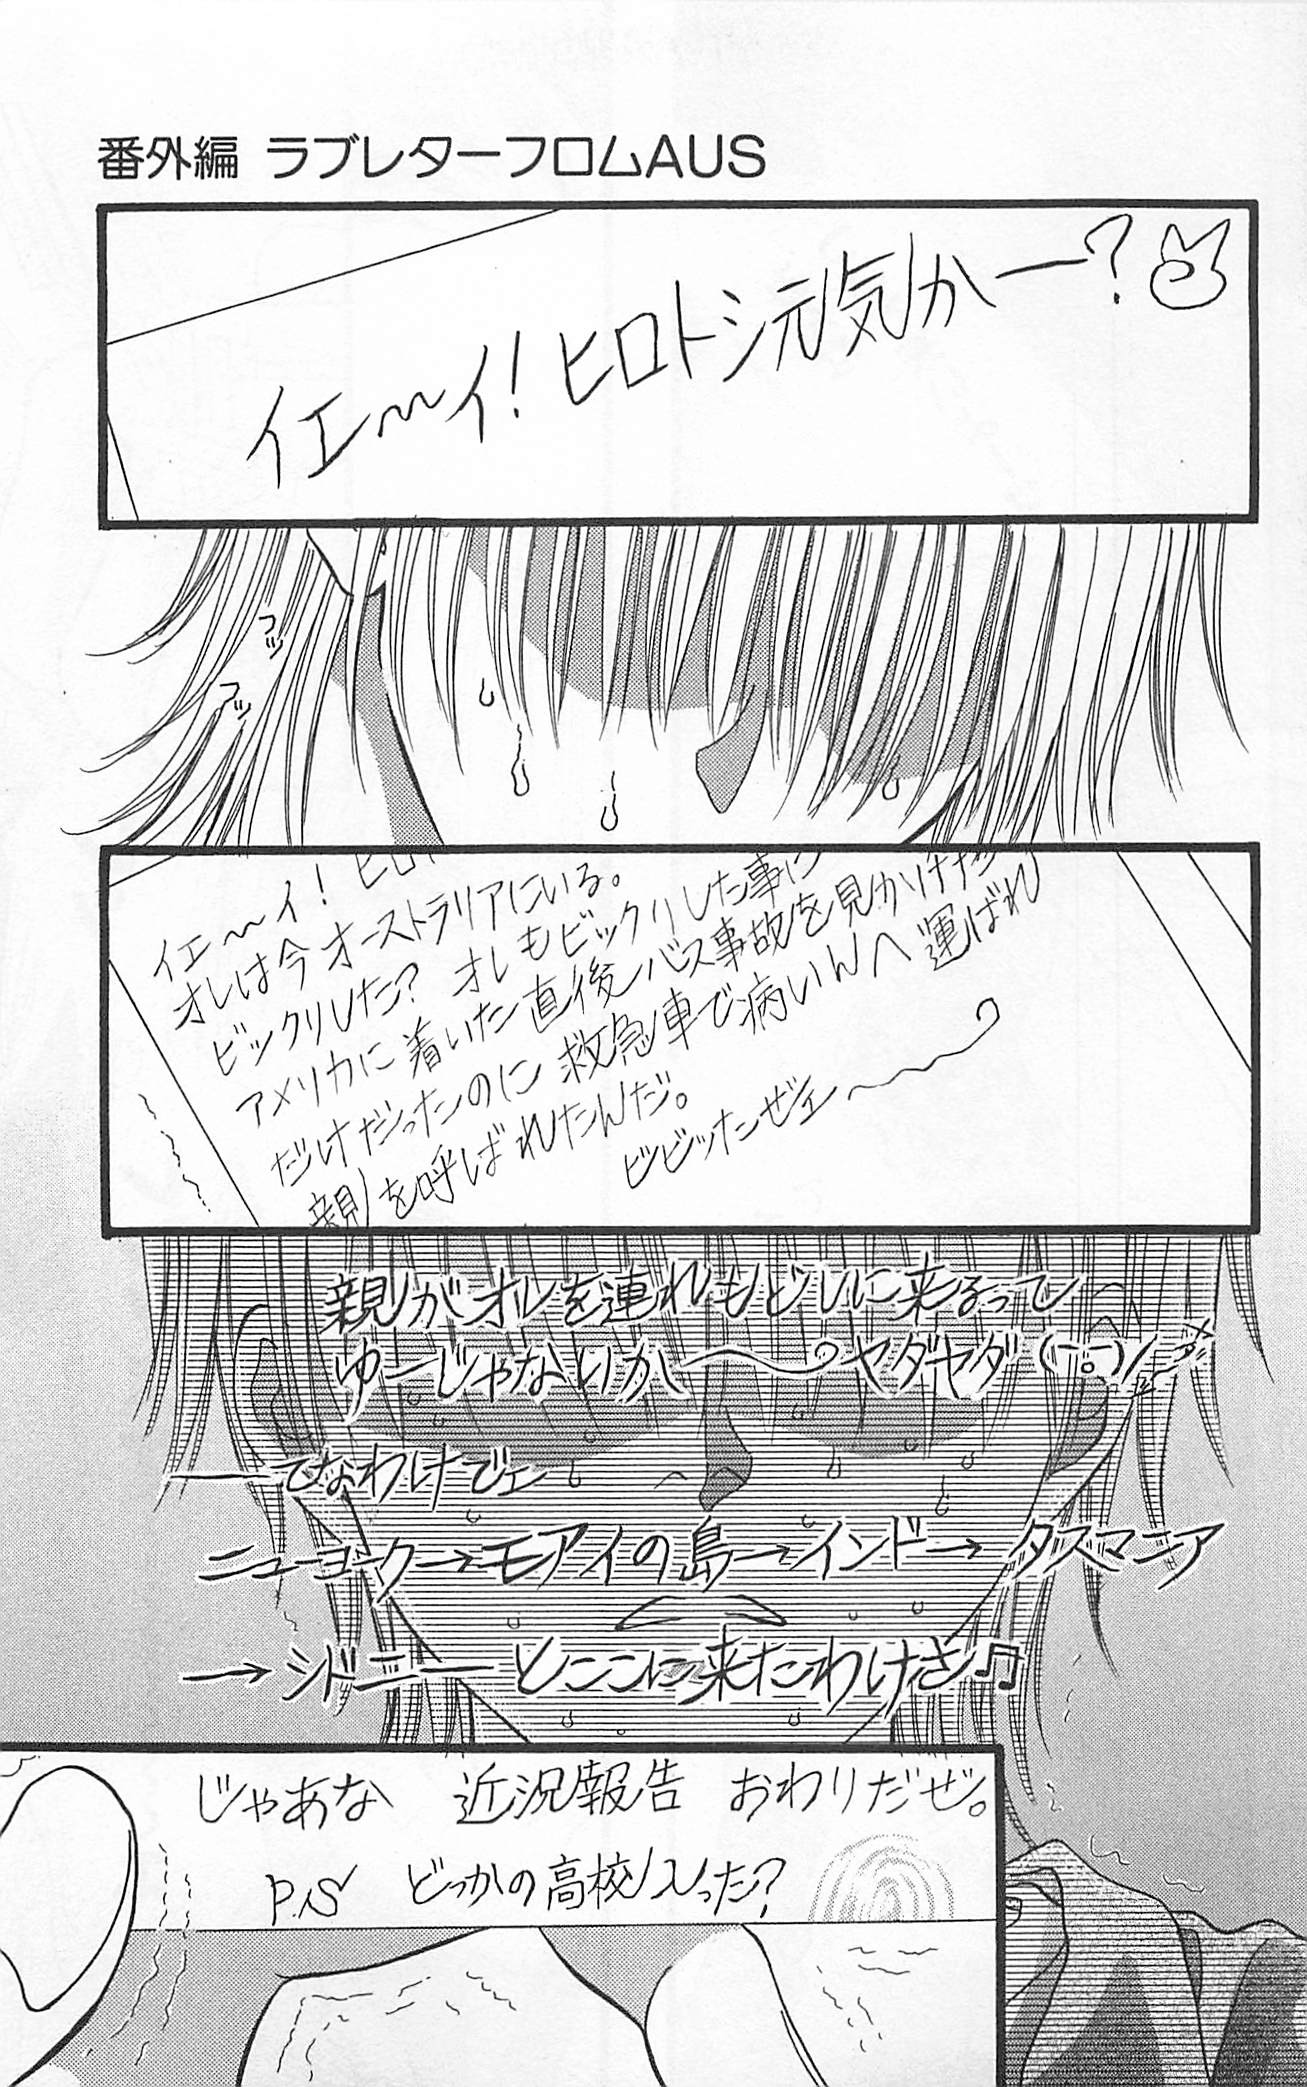 番外編 ラブレターフロムAUS
イエ～イ!ヒロトシ元気かー?
フッ
フッ
イエ～イ! ヒロ
オレは今オーストラリアにいる。
ビックリした? オレもビックリした事に
アメリカに着いた直後バス事故を見かけた
だけだったのに救急車で病いんへ運ばれ
親を呼ばれたんだ。
ビビッたぜェ～
親がオレを連れもどしに来るって
ゆーじゃないか～ヤダヤダ
ーてなわけでェ
ニューヨーク→モアイの島→インド→タスマニア
→シドニーーとここに来たわけさ♫
じゃあな 近況報告 おわりだぜ。
P.S どっかの高校入った?